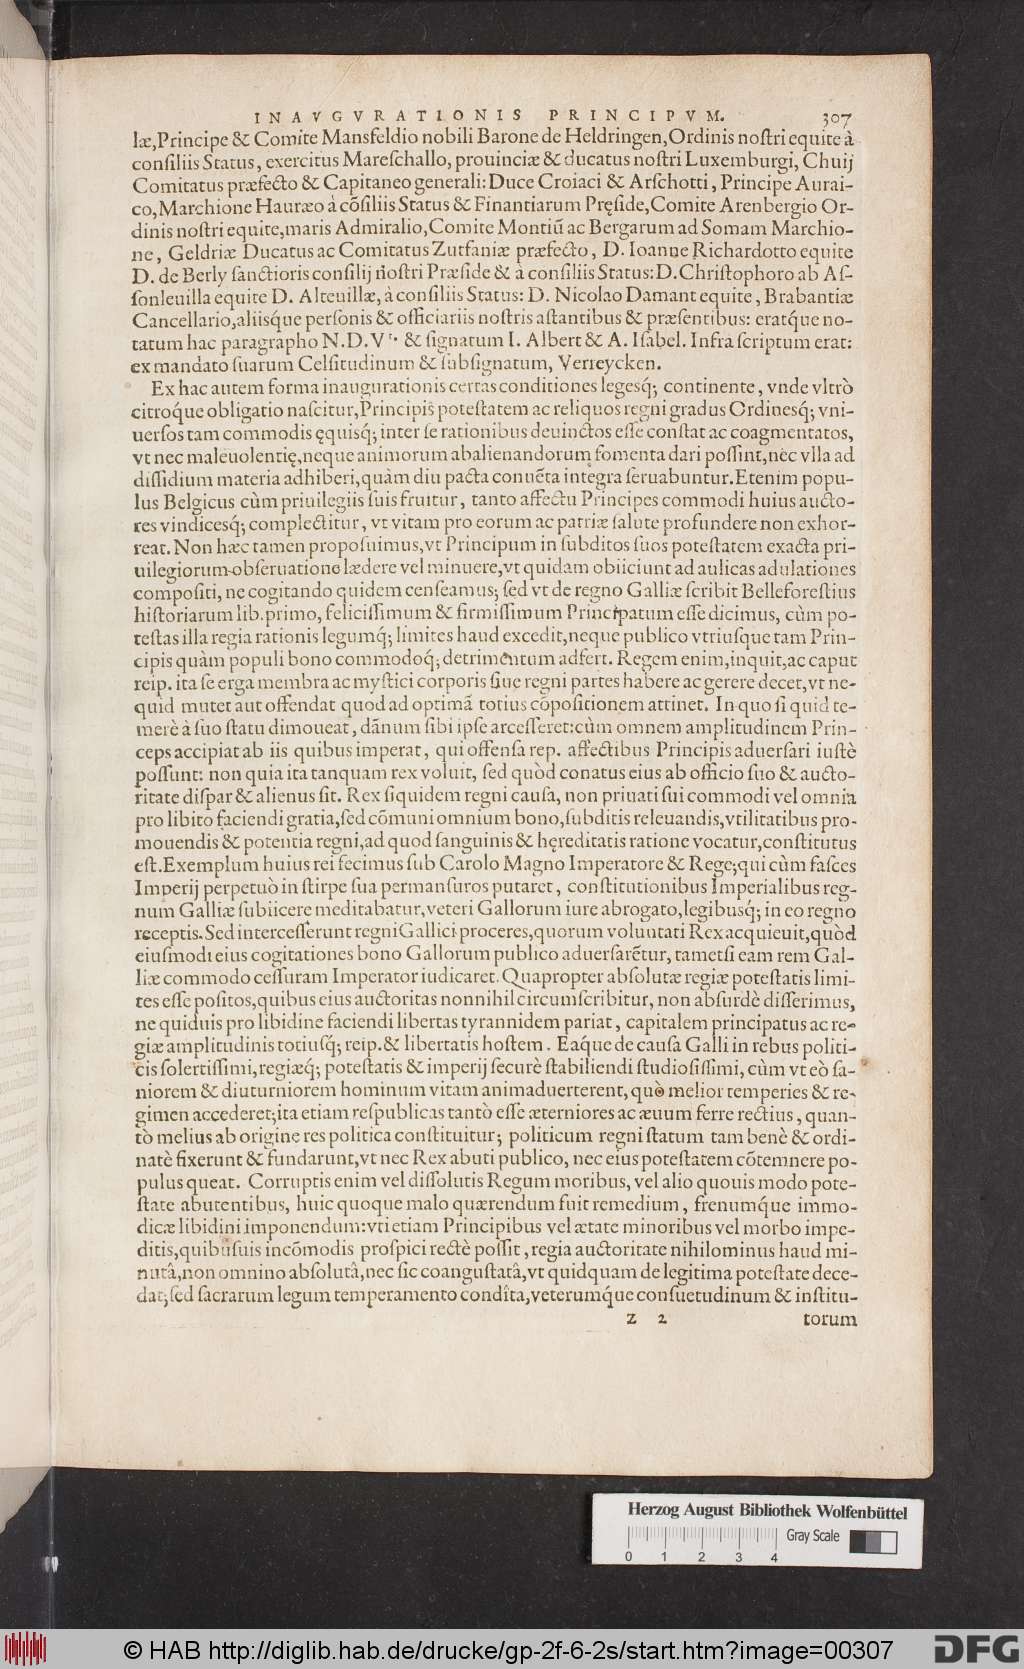 INAVGVRATIONIS PRINCIPVM. 307
læ,Principe & Comite Mansfeldio nobili Barone de Heldringen,Ordinis noſtri equite à
conſiliis Status, exercitus Mareſchallo, prouinciæ & ducatus noſtri Luxemburgi, Chuij
Comitatus præfecto & Capitaneo generali: Duce Croiaci & Arſchotti, Principe Aurai-
co, Marchione Hauræo à cõſiliis Status & Finantiarum Pręſide, Comite Arenbergio Or-
dinis noſtri equite, maris Admiralio, Comite Montiũ ac Bergarum ad Somam Marchio-
ne, Geldriæ Ducatus ac Comitatus Zutfaniæ præfecto, D. Ioanne Richardotto equite
D. de Berly ſanctioris conſilij noſtri Præſide & à conſiliis Status: D. Chriſtophoro ab Aſ-
ſonleuilla equite D. Alteuillæ, à conſiliis Status: D. Nicolao Damant equite, Brabantiæ
Cancellario, aliisque perſonis & officiariis noſtris aſtantibus & præſentibus: eratq́ue no-
tatum hac paragrapho N. D. Vᵗ· & ſignatum I. Albert & A. Iſabel. Infra ſcriptum erat:
ex mandato ſuarum Celſitudinum & ſubſignatum, Verreycken.
Ex hac autem forma inaugurationis certas conditiones legesq́; continente, vnde vltrò
citroque obligatio naſcitur, Principis poteſtatem ac reliquos regni gradus Ordinesq́; vni-
uerſos tam commodis ęquisq́; inter ſe rationibus deuinctos eſſe conſtat ac coagmentatos,
vt nec maleuolentię, neque animorum abalienandorum fomenta dari poſſint, nec vlla ad
diſſidium materia adhiberi, quàm diu pacta conuẽta integra ſeruabuntur. Etenim popu-
lus Belgicus cùm priuilegiis ſuis fruitur, tanto affectu Principes commodi huius aucto-
res vindicesq́; complectitur, vt vitam pro eorum ac patriæ ſalute profundere non exhor-
reat. Non hæc tamen propoſuimus, vt Principum in ſubditos ſuos poteſtatem exacta pri-
uilegiorum obſeruatione lædere vel minuere, vt quidam obiiciunt ad aulicas adulationes
compoſiti, ne cogitando quidem cenſeamus; ſed vt de regno Galliæ ſcribit Belleforeſtius
hiſtoriarum lib. primo, feliciſſimum & firmiſſimum Principatum eſſe dicimus, cùm po-
teſtas illa regia rationis legumq́; limites haud excedit, neque publico vtriuſque tam Prin-
cipis quàm populi bono commodoq́; detrimentum adfert. Regem enim, inquit, ac caput
reip. ita ſe erga membra ac myſtici corporis ſiue regni partes habere ac gerere decet, vt ne-
quid mutet aut offendat quod ad optimã totius cõpoſitionem attinet. In quo ſi quid te-
merè à ſuo ſtatu dimoueat, dãnum ſibi ipſe arceſſeret: cùm omnem amplitudinem Prin-
ceps accipiat ab iis quibus imperat, qui offenſa rep. affectibus Principis aduerſari iuſtè
poſſunt: non quia ita tanquam rex voluit, ſed quòd conatus eius ab officio ſuo & aucto-
ritate diſpar & alienus ſit. Rex ſiquidem regni cauſa, non priuati ſui commodi vel omnia
pro libito faciendi gratia, ſed cõmuni omnium bono, ſubditis releuandis, vtilitatibus pro-
mouendis & potentia regni, ad quod ſanguinis & hęreditatis ratione vocatur, conſtitutus
eſt. Exemplum huius rei fecimus ſub Carolo Magno Imperatore & Rege; qui cùm faſces
Imperij perpetuò in ſtirpe ſua permanſuros putaret, conſtitutionibus Imperialibus reg-
num Galliæ ſubiicere meditabatur, veteri Gallorum iure abrogato, legibusq́; in eo regno
receptis. Sed interceſſerunt regni Gallici proceres, quorum voluntati Rex acquieuit, quòd
eiuſmodi eius cogitationes bono Gallorum publico aduerſarẽtur, tametſi eam rem Gal-
liæ commodo ceſſuram Imperator iudicaret. Quapropter abſolutæ regiæ poteſtatis limi-
tes eſſe poſitos, quibus eius auctoritas nonnihil circumſcribitur, non abſurdè diſſerimus,
ne quiduis pro libidine faciendi libertas tyrannidem pariat, capitalem principatus ac re-
giæ amplitudinis totiusq́; reip. & libertatis hoſtem. Eaque de cauſa Galli in rebus politi-
cis ſolertiſſimi, regiæq́; poteſtatis & imperij ſecurè ſtabiliendi ſtudioſiſſimi, cùm vt eò ſa-
niorem & diuturniorem hominum vitam animaduerterent, quò melior temperies & re-
gimen accederet; ita etiam reſpublicas tantò eſſe æterniores ac æuum ferre rectius, quan-
tò melius ab origine res politica conſtituitur; politicum regni ſtatum tam benè & ordi-
natè fixerunt & fundarunt, vt nec Rex abuti publico, nec eius poteſtatem cõtemnere po-
pulus queat. Corruptis enim vel diſſolutis Regum moribus, vel alio quouis modo pote-
ſtate abutentibus, huic quoque malo quærendum fuit remedium, frenumq́ue immo-
dicæ libidini imponendum: vti etiam Principibus vel ætate minoribus vel morbo impe-
ditis, quibuſuis incõmodis proſpici rectè poſſit, regia auctoritate nihilominus haud mi-
nutâ, non omnino abſolutâ, nec ſic coanguſtatâ, vt quidquam de legitima poteſtate dece-
dat; ſed ſacrarum legum temperamento condîta, veterumq́ue conſuetudinum & inſtitu-
Z 2 torum
Herzog August Bibliothek Wolfenbüttel
Gray Scale
0 1 2 3 4
© HAB http://diglib.hab.de/drucke/gp-2f-6-2s/start.htm?image=00307 DFG